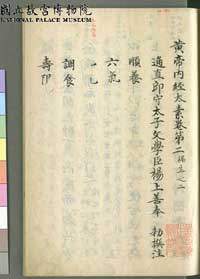 國立故宮博物院
NATIONAL PALACE MUSEUM
黃帝內經太素卷第二
攝生之二
通直郎守太子文學臣楊上善奉 勅撰注
順養
六氣
九氣
調食
壽限